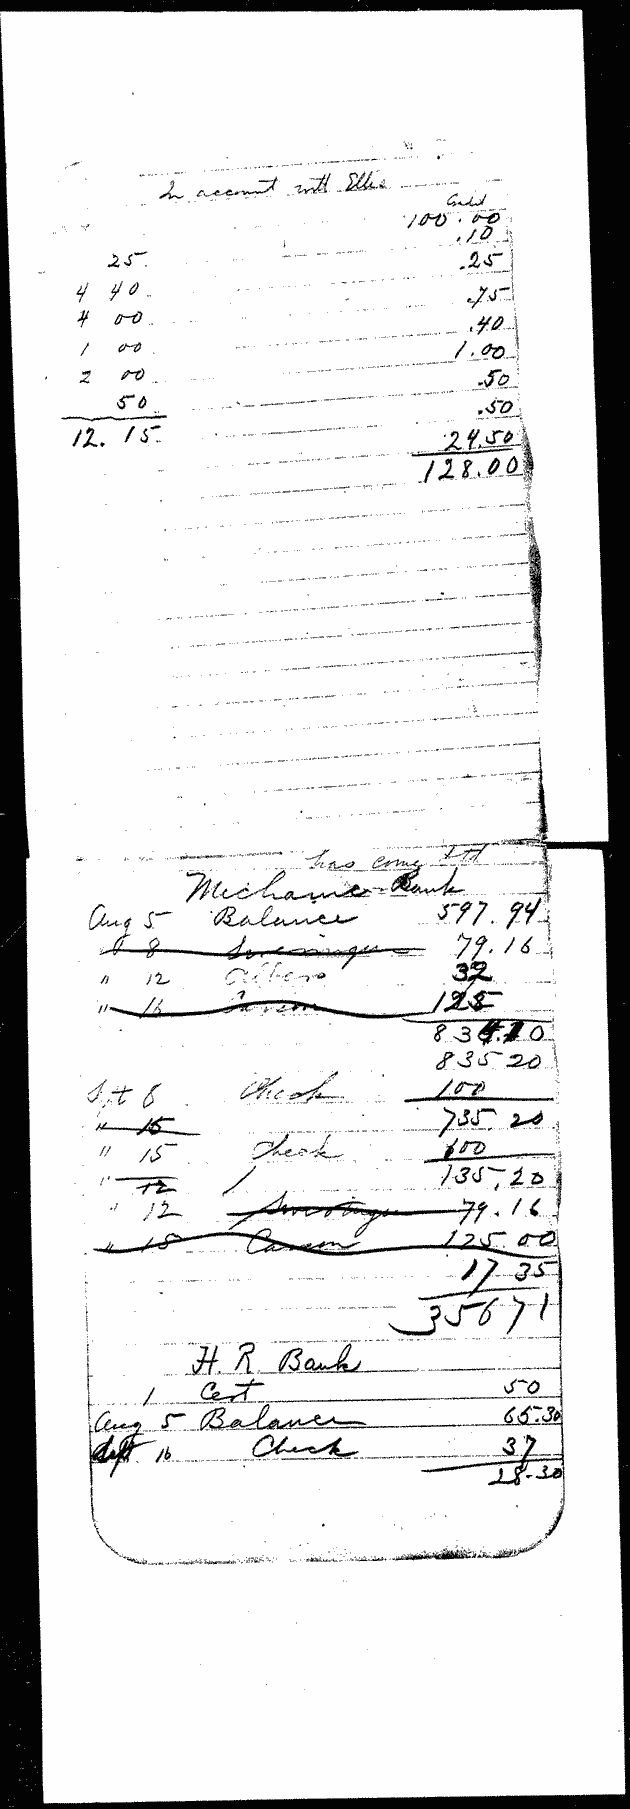 In account with Ellis
Credit
100.00
.10
25 .25
4 40 .75
4 00 .40
1 00 1.00
2 00 .50
50 .50
12.15 24.50
128.00
has come
Mechanic Bank
Aug 5 Balance 597.94
" 8 79.16
" 12 32
" 16 Carson 125
83 0
835 20
Spt 8 Check 100
" 15 735.20
" 15 Check 600
" 12 135.20
" 12 79.16
" 15 Carson 125.00
17 35
356 71
H. R. Bank
1 Cert 50
Aug 5 Balance 65.30
Sept 16 Check 37
28-30